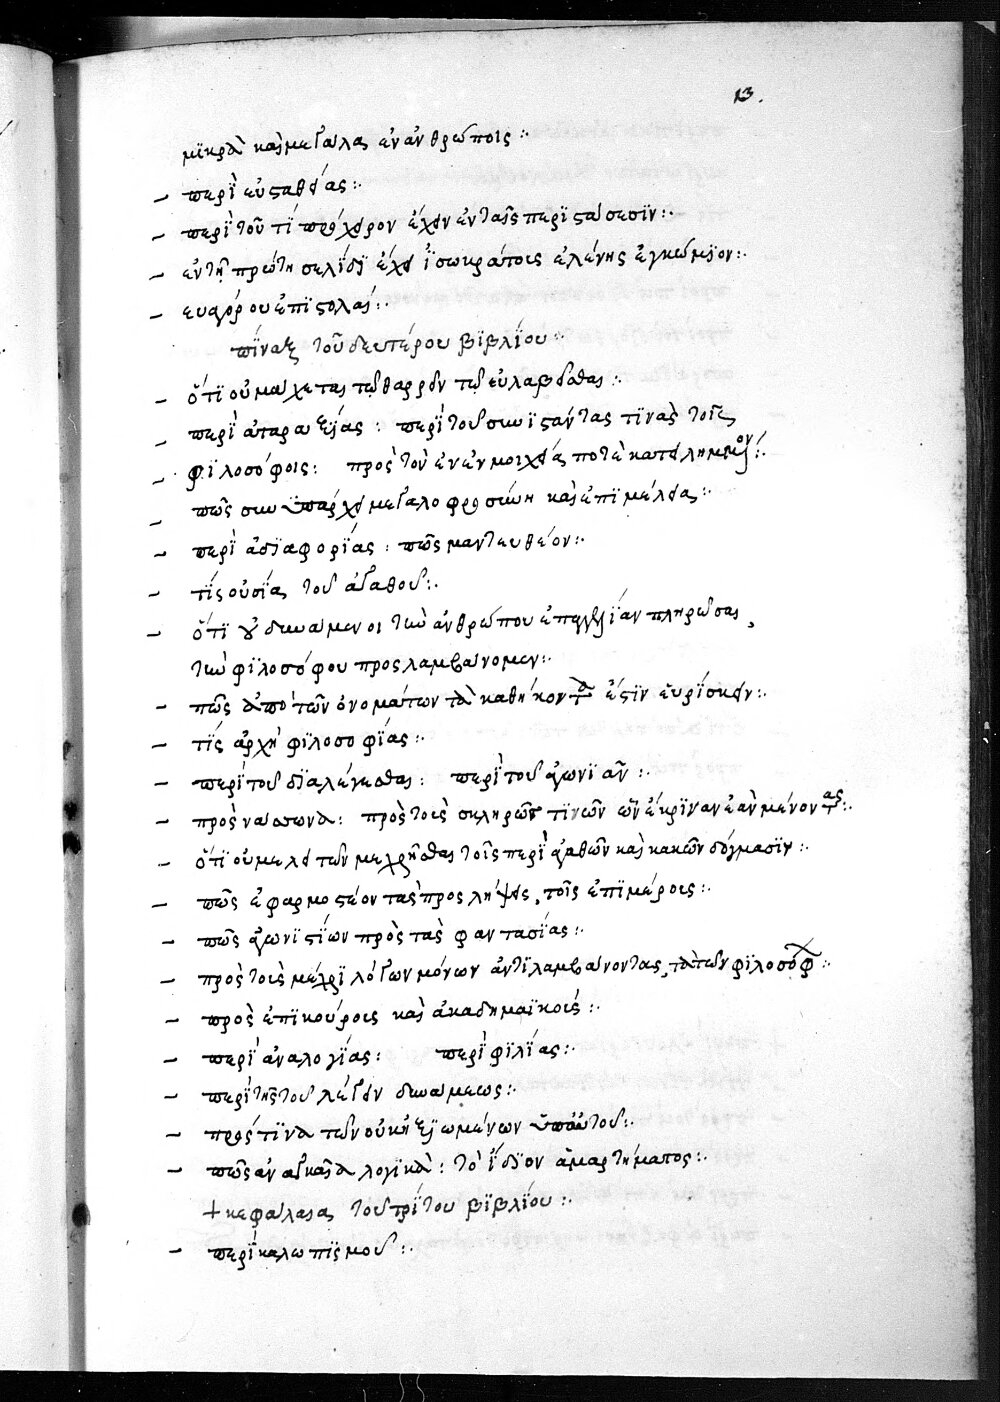 13.
μϊκρὰ καὶ μεγάλα ἐν ἀνθρώποις :·
– περὶ εὐσταθείας :·
– περὶ τοῦ τί πρόχειρον ἔχειν ἐν ταῖς περιστάσεσϊν :·
– ἐν τῇ πρώτη σελίδϊ ἔχει ἰσωκράτοις ἑλένης ἐγκώμϊον :·
– ευαγόρου ἐπϊστολαί :·
πίναξ τοῦ δευτέρου βϊβλΐου :·
– ὅτϊ οὐ μάχεται τῶ θαρρεῖν τῶ εὐλαβεῖσθαι :·
– περὶ ἀταραξίας : περὶ τοῦ συνϊστάντας τϊνὰς τοῖς
– φϊλοσόφοις : πρὸς τὸν ἐν ἐν μοιχεία ποτὲ κατειλημμένον :·
– πῶς συνυπάρχει μεγαλοφροσύνη καὶ ἐπϊμέλεια :·
– περὶ ἀδϊαφορίας : πῶς μαντευθέον :·
– τίς οὐσία τοῦ ἀγαθοῦ :·
– ὅτϊ οὐ δυνάμενοι τὴν ἀνθρώπου ἐπαγγελίαν πληρῶσαι,
τὴν φϊλοσόφου προσλαμβάνομεν :·
– πῶς ἀπὸ τῶν ὀνομάτων τὰ καθήκοντα ἐστϊν εὑρίσκειν :·
– τίς ἀρχὴ φϊλοσοφίας :·
– περὶ τοῦ δϊαλέγεσθαι : περὶ τοῦ ἀγωνϊᾶν :·
– πρὸς νάσωνα : πρὸς τοὺς σκληρῶς τϊνῶν ὧν ἔκρϊναν ἐὰν μένοντας :·
– ὅτϊ οὐ μελετῶμεν χρῆσθαι τοῖς περὶ ἀγαθῶν καὶ κακῶν δόγμασϊν :·
– πῶς ἐφαρμοστέον τὰς προσλήψεις, τοῖς ἐπϊμέροις :·
– πῶς ἀγωνϊστέον πρὸς τὰς φαντασίας :·
– πρὸς τοὺς μέχρϊ λόγων μόνων ἀντϊλαμβάνοντας, τὰ τῶν φϊλοσόφων :·
– πρὸς ἐπϊκούροις καὶ ἀκαδημαϊκοὺς :·
– περὶ ἀναλογίας : περὶ φϊλίας :·
– περὶ τῆς τοῦ λέγειν δυνάμεως :·
– πρός τϊνα τῶν οὐκ ἠξϊωμένων ὑπ᾽ αὐτοῦ :·
– πῶς ἀναγκαῖα λογϊκά : τὸ ἴδϊον ἁμαρτήματος :·
+ κεφάλαια τοῦ τρίτου βϊβλίου :·
– περὶ καλωπϊσμοῦ :·